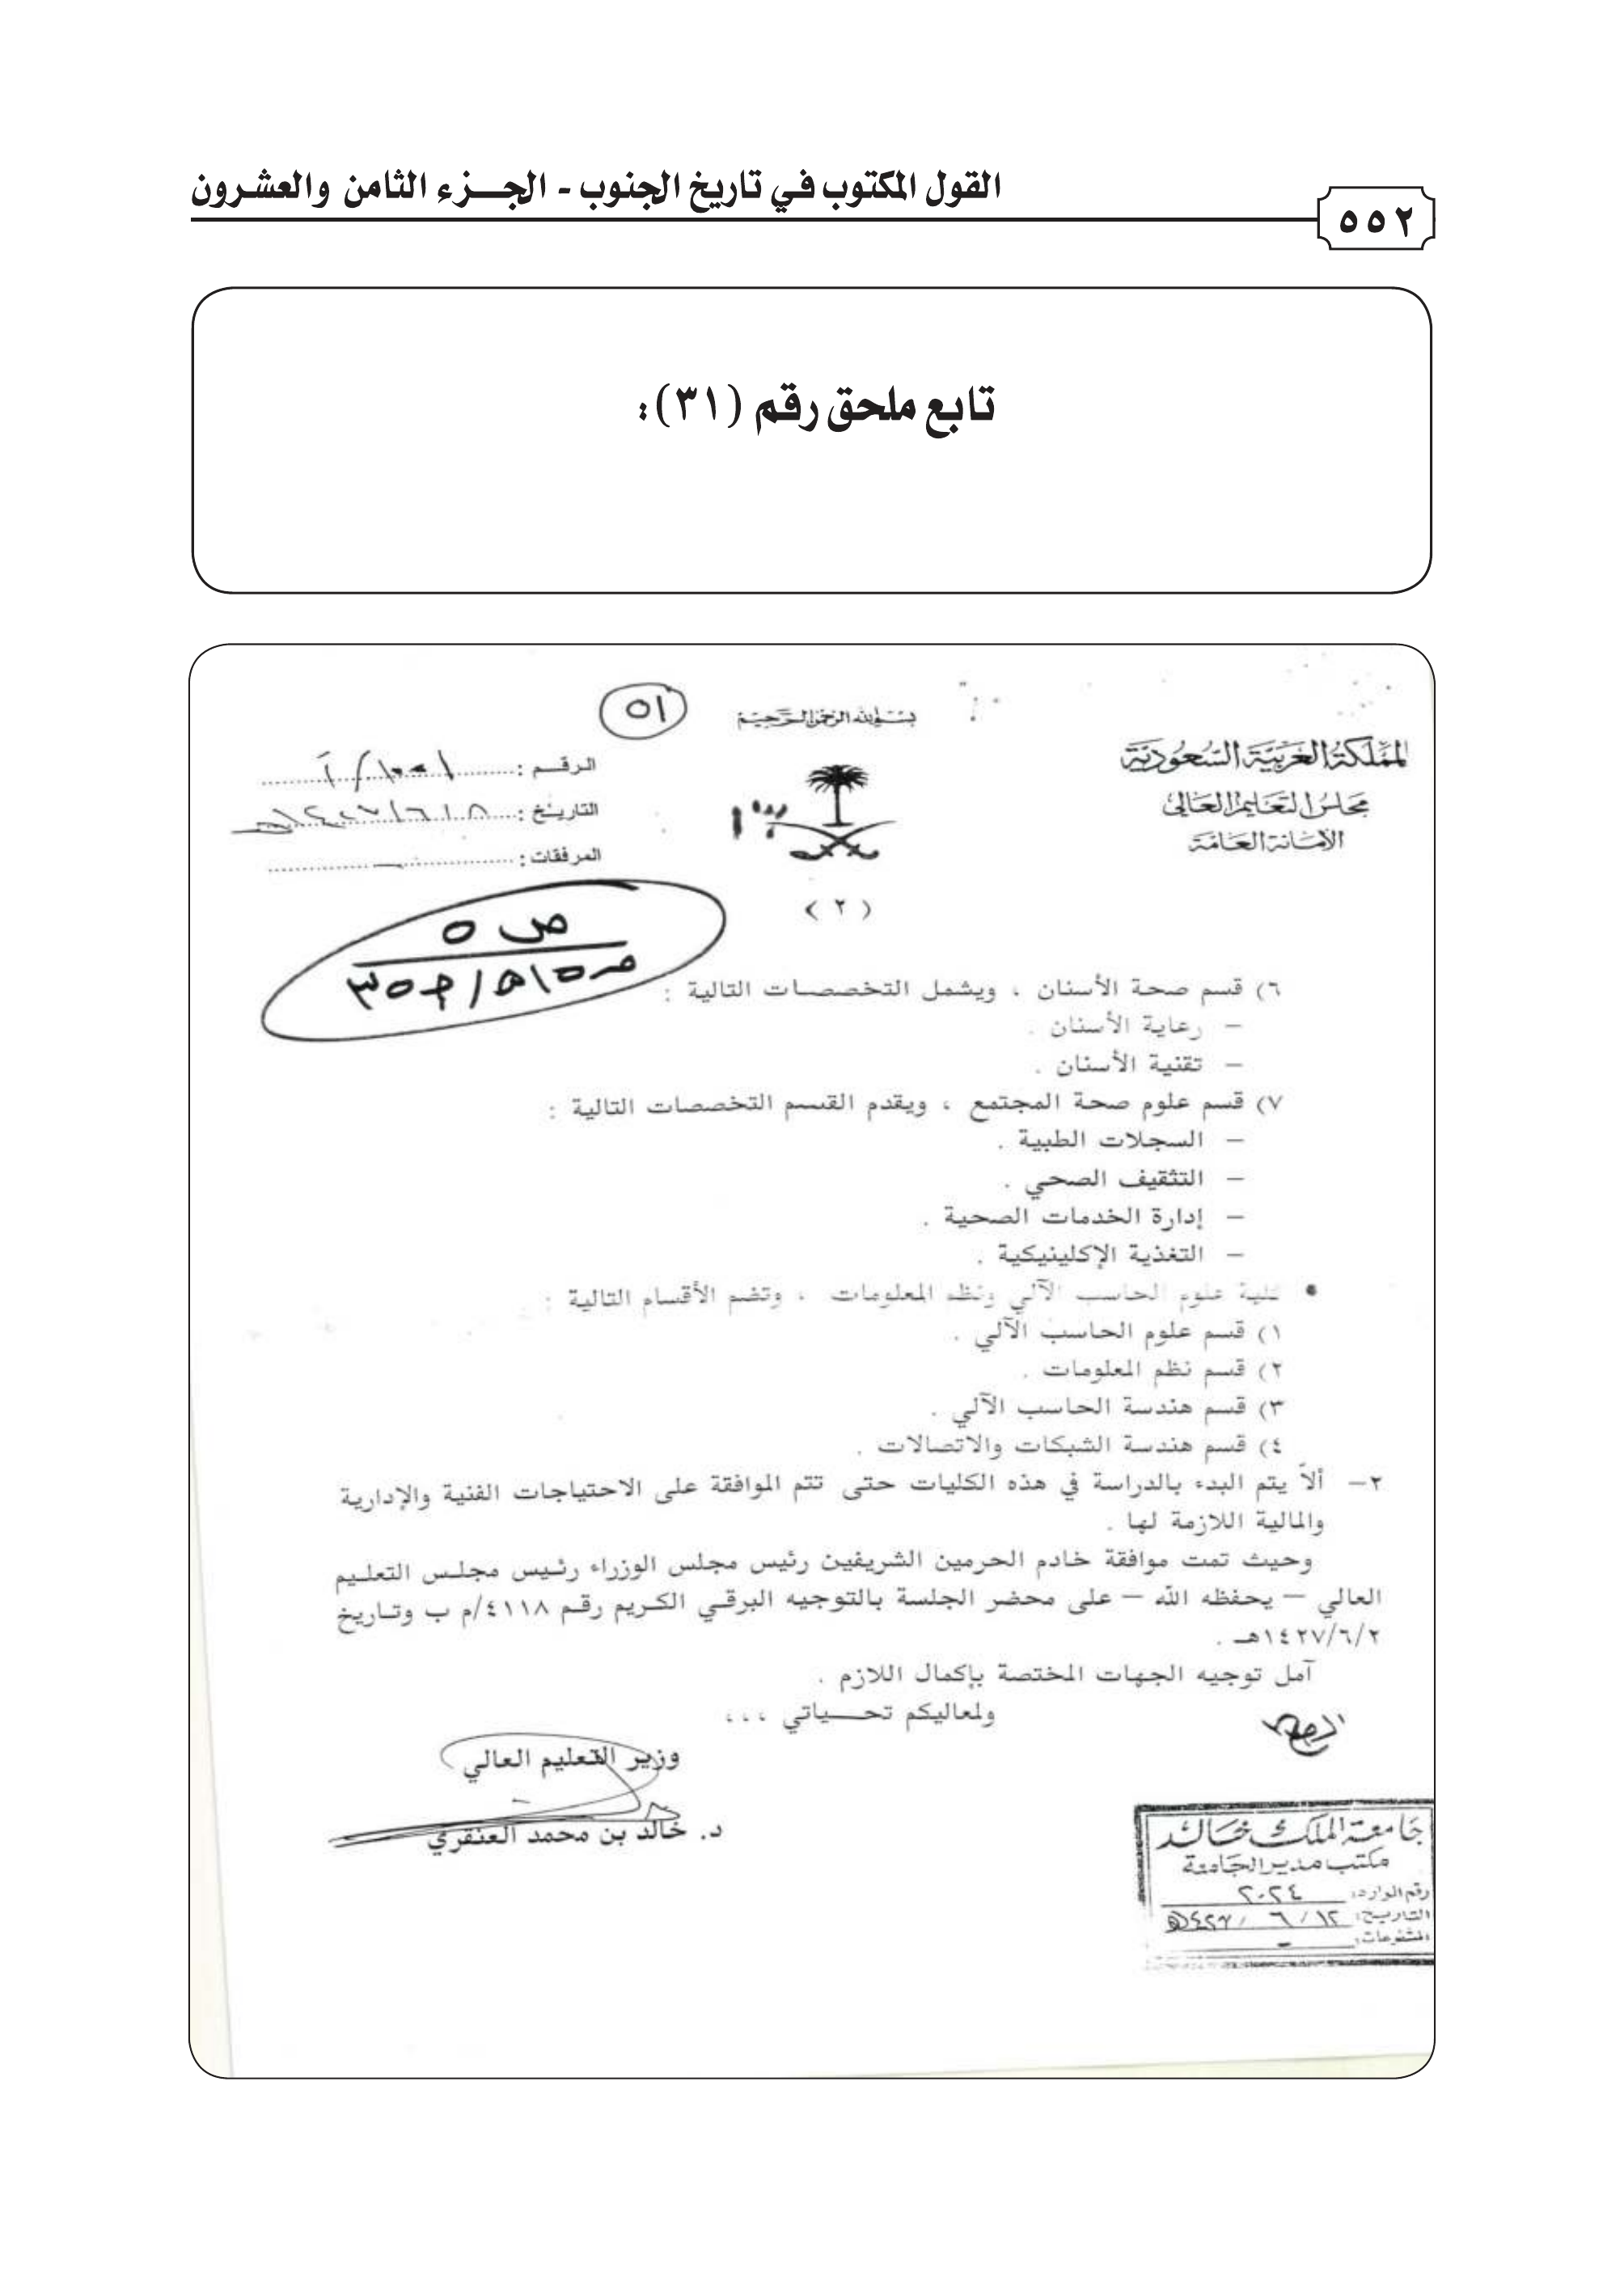 القول المكتوب في تاريخ الجنوب - الجزء الثامن والعشرون
٥٥٢
تابع ملحق رقم (٣١):
٥١
بسم الله الرحمن الرحيم
المملكة العربية السعودية
مجلس التعليم العالي
الأمانة العامة
الرقم :
التاريخ : ١٤٢٧/٦/٨هـ
المرفقات : —
(٢)
ص ٥
٦) قسم صحة الأسنان ، ويشمل التخصصات التالية :
– رعاية الأسنان .
– تقنية الأسنان .
٧) قسم علوم صحة المجتمع ، ويقدم القسم التخصصات التالية :
– السجلات الطبية .
– التثقيف الصحي .
– إدارة الخدمات الصحية .
– التغذية الإكلينيكية .
• كلية علوم الحاسب الآلي ونظم المعلومات ، وتضم الأقسام التالية :
١) قسم علوم الحاسب الآلي .
٢) قسم نظم المعلومات .
٣) قسم هندسة الحاسب الآلي .
٤) قسم هندسة الشبكات والاتصالات .
٢– ألاّ يتم البدء بالدراسة في هذه الكليات حتى تتم الموافقة على الاحتياجات الفنية والإدارية
والمالية اللازمة لها .
وحيث تمت موافقة خادم الحرمين الشريفين رئيس مجلس الوزراء رئيس مجلس التعليم
العالي – يحفظه الله – على محضر الجلسة بالتوجيه البرقي الكريم رقم ٤١١٨/م ب وتاريخ
١٤٢٧/٦/٢هـ .
آمل توجيه الجهات المختصة بإكمال اللازم .
ولمعاليكم تحياتي ،،،
وزير التعليم العالي
د. خالد بن محمد العنقري
جامعة الملك خالد
مكتب مدير الجامعة
رقم الوارد: ٢٠٢٤
التاريخ: ١٢/ ٦ /٤٢٧هـ
المشفوعات: -